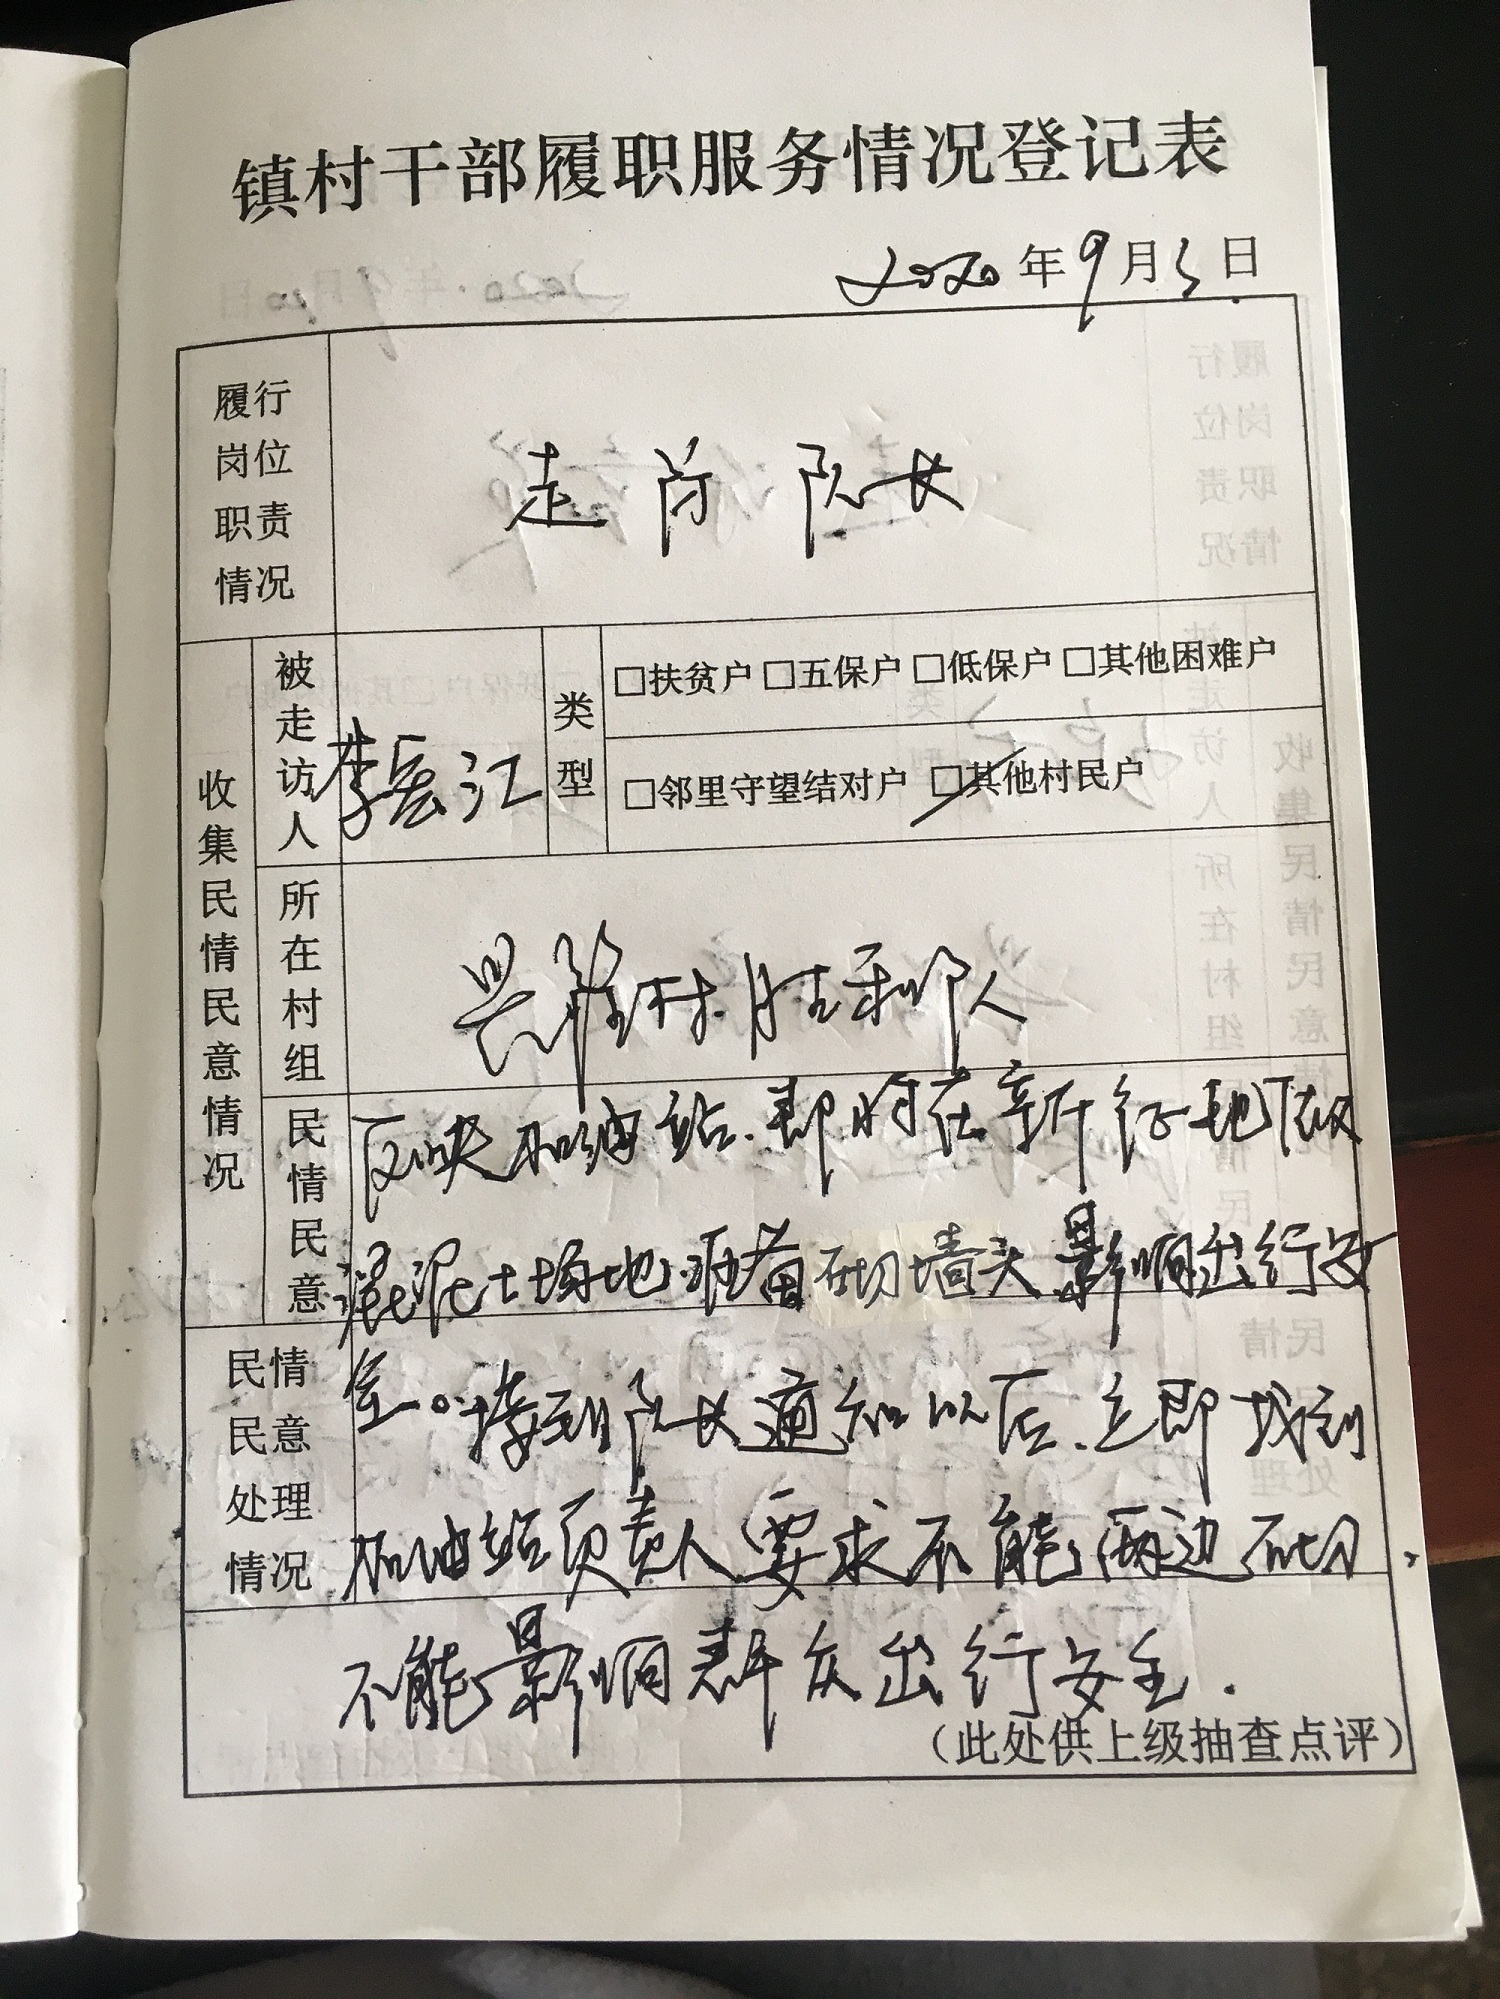 镇村干部履职服务情况登记表
2020年9月3日
履行岗位职责情况
走访队长
收集民情民意情况
被走访人
李宏江
类型
□扶贫户 □五保户 □低保户 □其他困难户
□邻里守望结对户 □其他村民户
所在村组
兴隆村胜利队人
民情民意
反映加油站.即将在新征地下做
混泥土场地.准备砌墙头影响出行安
民情民意处理情况
全。接到队长通知以后.立即找到
加油站负责人要求不能两边砌,
不能影响群众出行安全.
（此处供上级抽查点评）